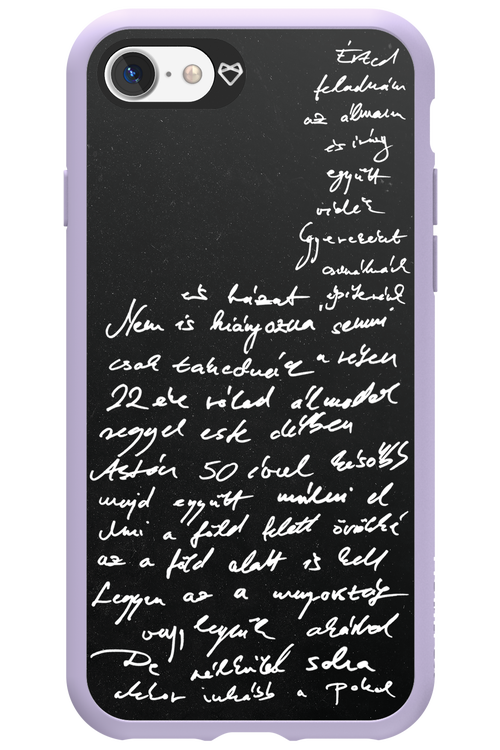 Érted
feladnám
az álmaim
és így
együtt
vidék
Gyerekeket
csinálnánk
és házat építenénk
Nem is hiányozna semmi
csak takednék a réten
22 éve rólad álmodok
reggel este délben
Aztán 50 évvel később
majd együtt múlni el
Ami a föld felett örökké
az a föld alatt is kell
Legyen az a menyország
vagy legyünk akárhol
De nélküled soha
akkor inkább a pokol